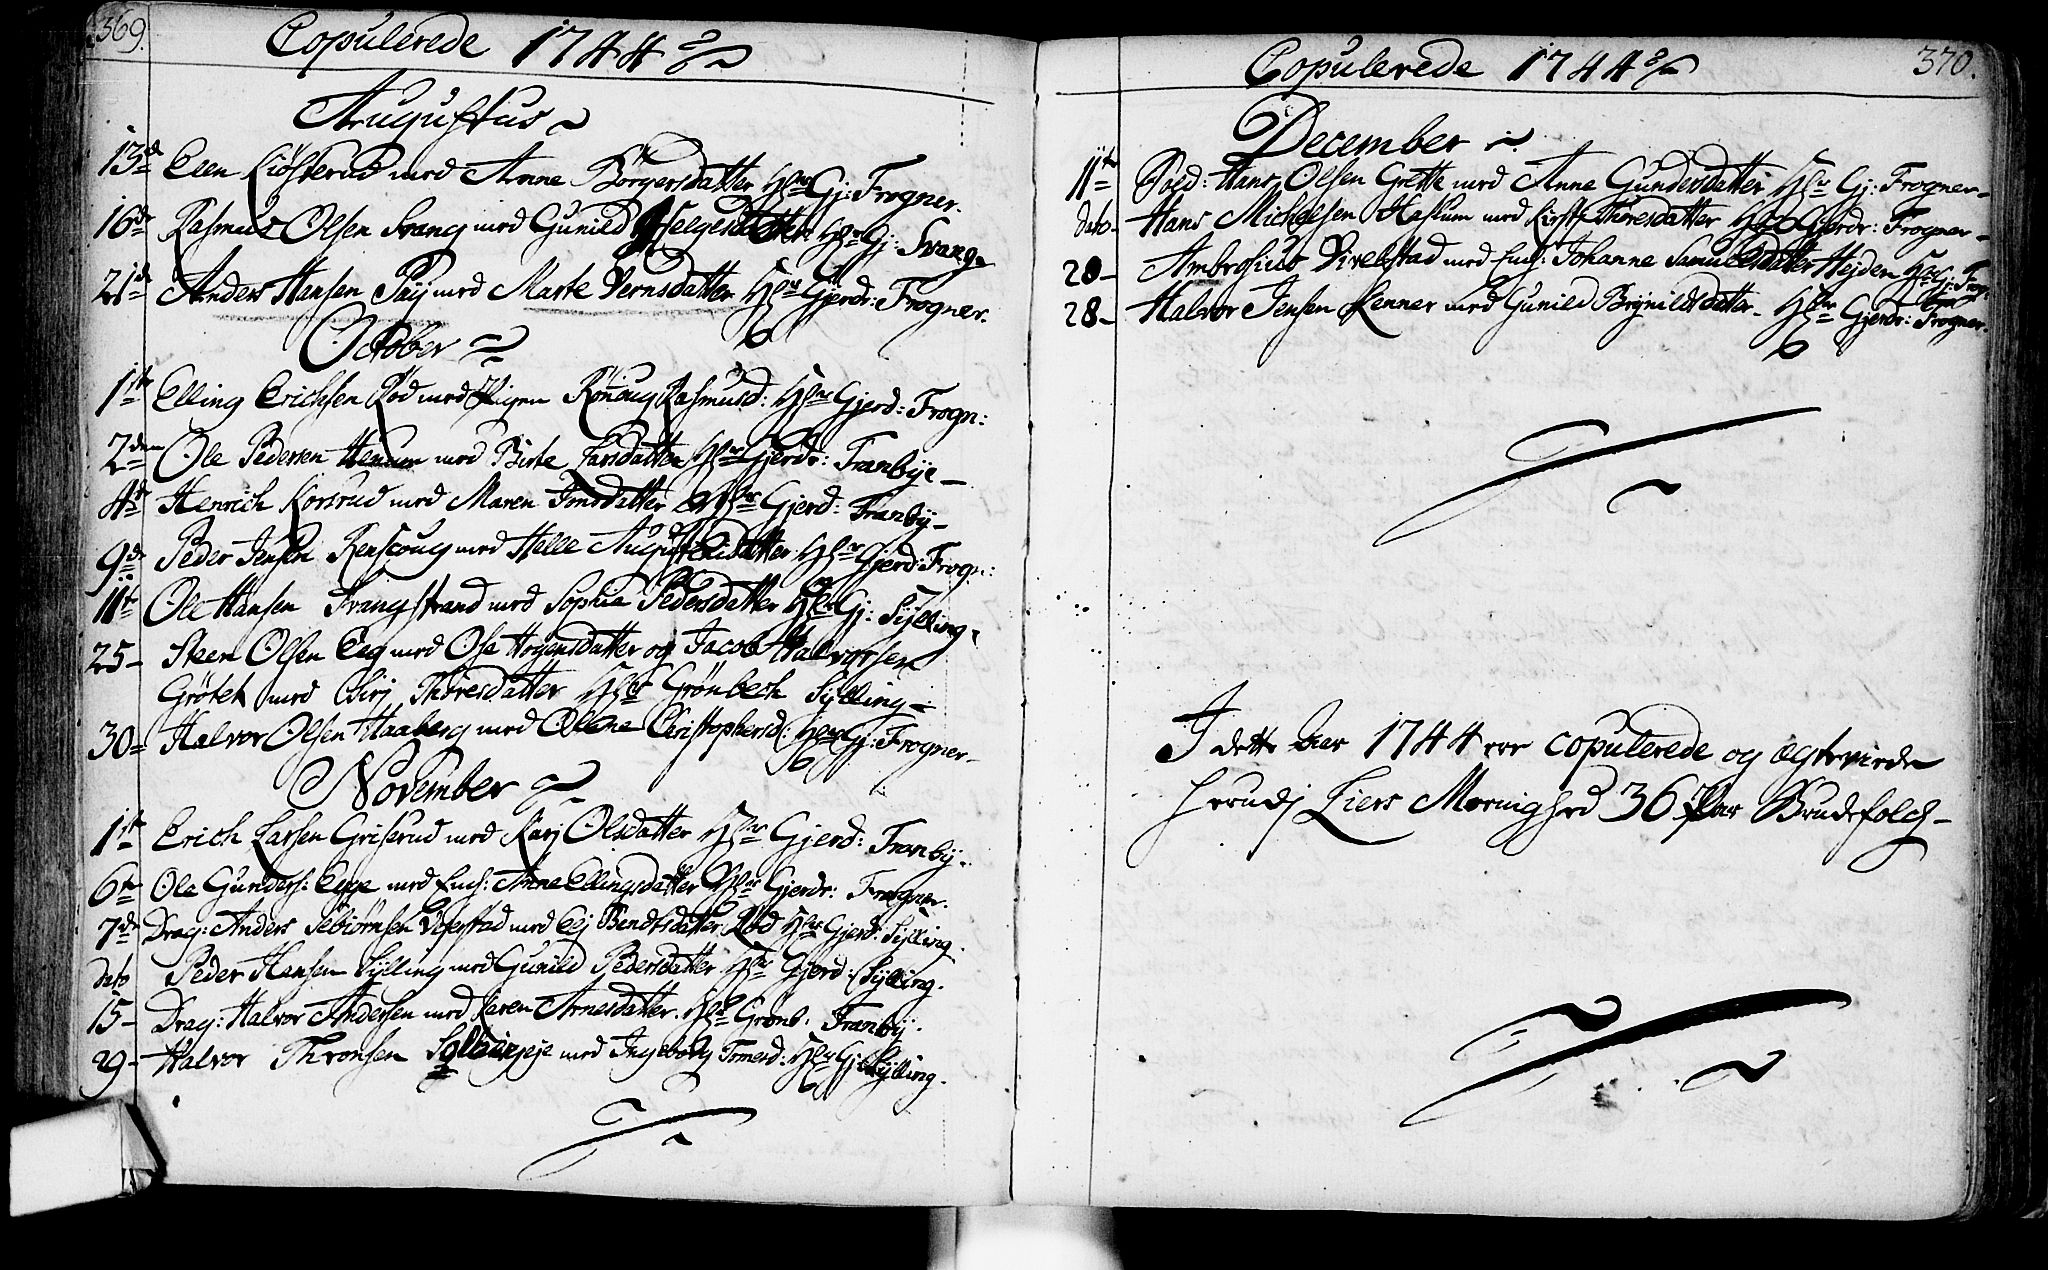 369.
Copulerede 1744
Augustus
13d Elen Kiösterud med Anne Börgersdatter Hr Gj: Frogner.
16de Rasmus Olsen Svang med Gunild Helgesdatter Hr Gj: Svang
21de Anders Hansen Paÿ med Marte Bernsdatter Hr Gjerdr: Frogner.
October
1te Elling Erichsen Röd med Pigen Rönaug Rasmusd: Hr Gjerd: Frogn:
2den Ole Pedersen Hennum med Birte Larsdatter Hr Gjerdr: Tranbÿe
4de Henrich Korsrud med Maren Jonsdatter Hr Gjerd: Tranbÿ
9de Peder Jensen Renscoug med Helle Augustinisdatter Hr Gjerd: Frogn:
11te Ole Hansen Svangstrand med Sophia Pedersdatter Hr Gj: Sÿlling
25 Steen Olsen Eeg med Ose Hogensdatter og Jacob Halvorsen
Grötet med Sirj Thoresdatter Hr Grönbech Sÿlling
30 Halvor Olsen Haaberg med Olene Christophersd: Hr Gj: Frogner
November
1te Erich Larsen Griserud med Karj Olsdatter Hr Gjerd: Tranbÿ.
6te Ole Gunders: Egge med Encke: Anne Ellingsdatter Hr Gjerdr: Frogner.
7de Drag: Anders Sebiörnsen Vefrstad med Elj Bendtsdatter Röd Hr Gjerd: Sÿlling.
dato Peder Hansen Sÿlling med Gunild Pedersdatter Hr Gjerd: Sÿlling.
15 Drag: Halvor Andersen med Karen Arnesdatter. Hr Grönb. Tranbÿ.
29 Halvor Thronsen med Ingeborg Tomesd: Hr Gj: Sÿlling.
370.
Copulerede 1744
December
11te Sold: Hans Olsen Grette med Anne Gundersdatter Hr Gj: Frogner
dato Hans Michelsen Haskum med Kirsti Thoresdatter Hr Gjerdr: Frogner
20 Ambrosius Vivelstad med Enck: Johanne Samuelsdatter Hejden Hr Gj: Frog:
28 Halvor Jensen Kenner med Gunild Brÿnildsdatter. Hr Gjerdr: Frogner.
I dette Aar 1744 ere copulerede og ægteviede
herudj Liers Menighed 36 Par Brudefolch